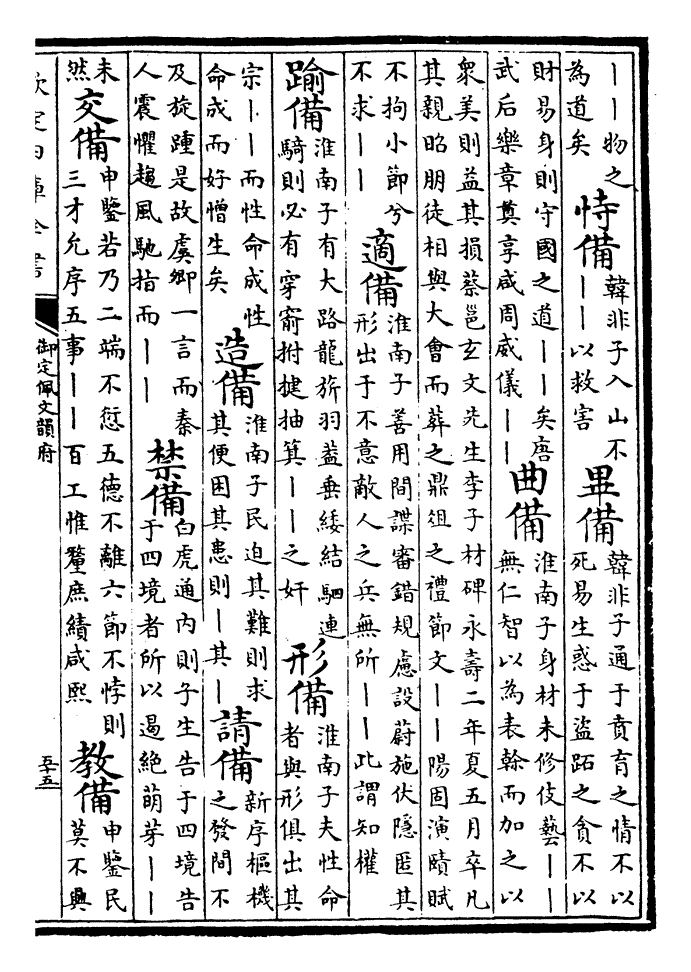 ｜｜物之
為道矣
恃備
韓非子入山不
｜｜以救害
畢備
韓非子通于賁育之情不以
死易生惑于盜跖之貪不以
財易身則守國之道｜｜矣唐
武后樂章奠享咸周威儀｜｜
曲備
淮南子身材未修伎藝｜｜
無仁智以為表幹而加之以
衆美則益其損蔡邕玄文先生李子材碑永壽二年夏五月卒凡
其親昭朋徒相與大會而葬之鼎俎之禮節文｜｜陽固演賾賦
不拘小節兮
不求｜｜
適備
淮南子善用間諜審錯規慮設蔚施伏隱匿其
形出于不意敵人之兵無所｜｜此謂知權
踰備
淮南子有大路龍旂羽蓋垂緌結駟連
騎則必有穿窬拊揵抽箕｜｜之奸
形備
淮南子夫性命
者與形俱出其
宗｜｜而性命成性
命成而好憎生矣
造備
淮南子民迫其難則求
其便困其患則｜其｜
請備
新序樞機
之發間不
及旋踵是故虞卿一言而秦
人震懼趨風馳指而｜｜
禁備
白虎通内則子生告于四境告
于四境者所以遏絶萌芽｜｜
未
然
交備
申鑒若乃二端不愆五德不離六節不悖則
三才允序五事｜｜百工惟釐庶績咸熙
教備
申鑒民
莫不興
欽定四庫全書
御定佩文韻府
五十五